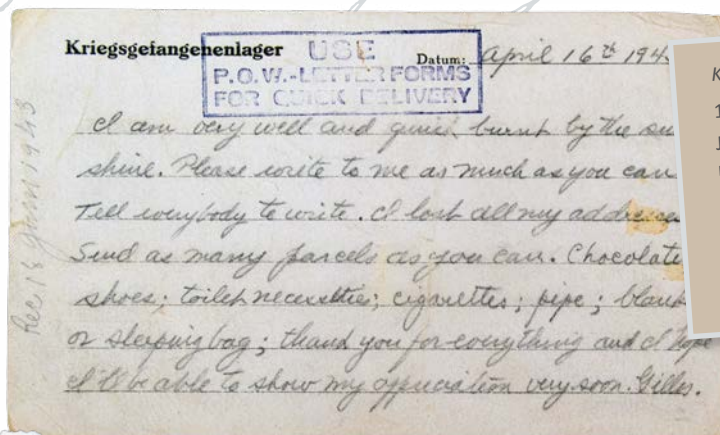 Kriegsgefangenenlager
USE
P.O.W.-LETTER FORMS
FOR QUICK DELIVERY
Datum: April 16th 194
I am very well and quick burnt by the su
shine. Please write to me as much as you can
Tell everybody to write. I lost all my addresses
Send as many parcels as you can. Chocolate
shoes; toilet necessities; cigarettes; pipe; blank
or sleeping bag; thank you for everything and I hope
I'll be able to show my appreciation very soon. Gilles.
Rec 18 June 1943
K
1
J